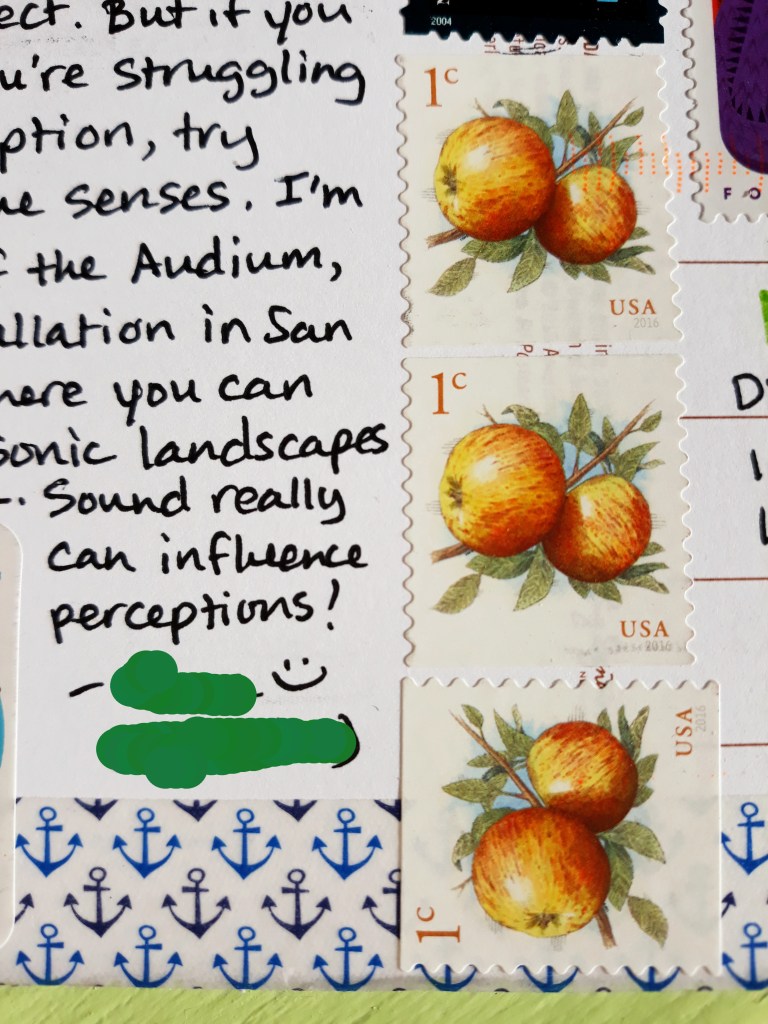 ect. But if you
u're struggling
ption, try
senses. I'm
the Audium,
allation in San
here you can
sonic landscapes
Sound really
can influence
perceptions!
2004
1c
USA
2016
1c
USA
2016
1c
USA
2016
F O